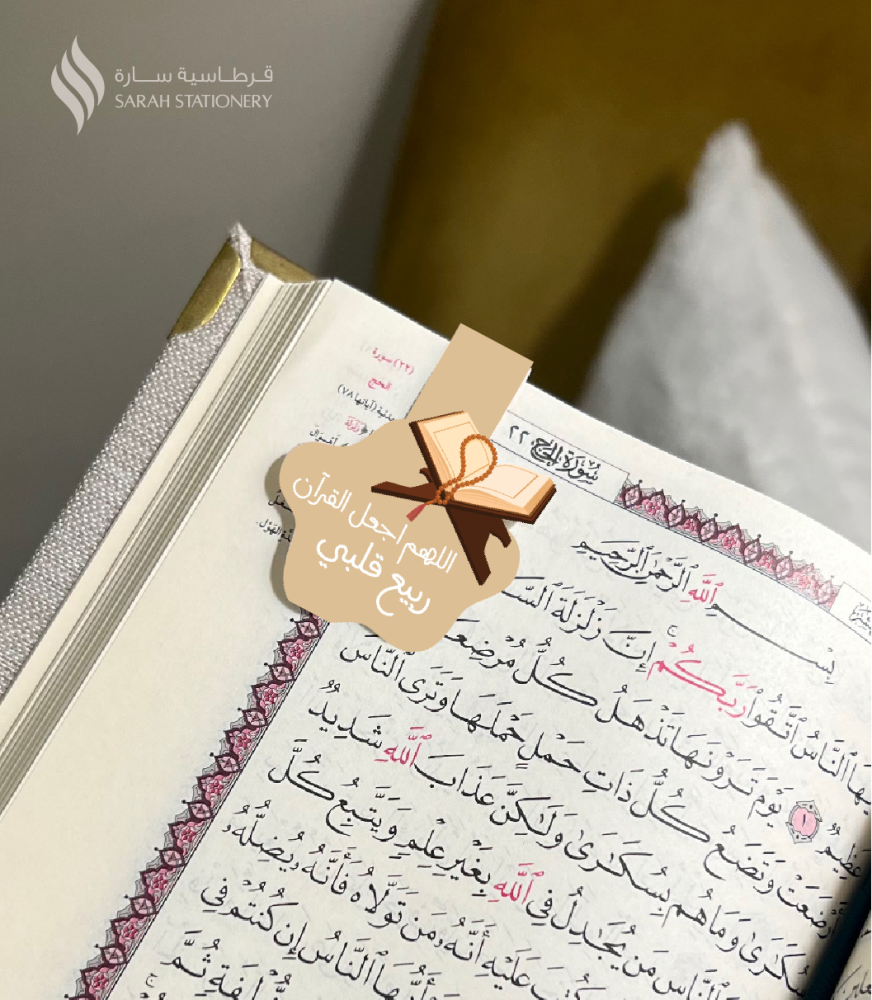 قرطاسية سارة
SARAH STATIONERY
(٢٢) سورة
الحج
(آياتها ٧٨)
سُورَةُ الحَجّ ٢٢
اللهم اجعل القرآن
ربيع قلبي
بِسْمِ ٱللَّهِ ٱلرَّحْمَٰنِ ٱلرَّحِيمِ
ٱلنَّاسُ ٱتَّقُوا۟ رَبَّكُمْ ۚ إِنَّ زَلْزَلَةَ
عَظِيمٌ ١ يَوْمَ تَرَوْنَهَا تَذْهَلُ كُلُّ مُرْضِعَةٍ
أَرْضَعَتْ وَتَضَعُ كُلُّ ذَاتِ حَمْلٍ حَمْلَهَا وَتَرَى ٱلنَّاسَ
سُكَٰرَىٰ وَمَا هُم بِسُكَٰرَىٰ وَلَٰكِنَّ عَذَابَ ٱللَّهِ شَدِيدٌ
ٱلنَّاسِ مَن يُجَٰدِلُ فِى ٱللَّهِ بِغَيْرِ عِلْمٍ وَيَتَّبِعُ كُلَّ
كُتِبَ عَلَيْهِ أَنَّهُۥ مَن تَوَلَّاهُ فَأَنَّهُۥ يُضِلُّهُۥ
ٱلنَّاسُ إِن كُنتُمْ فِى
ثُمَّ